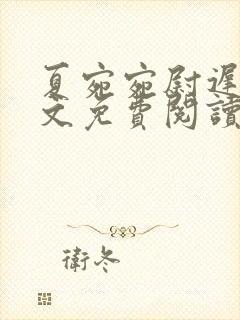 夏宛宛尉遲
文免費閱讀
衛冬